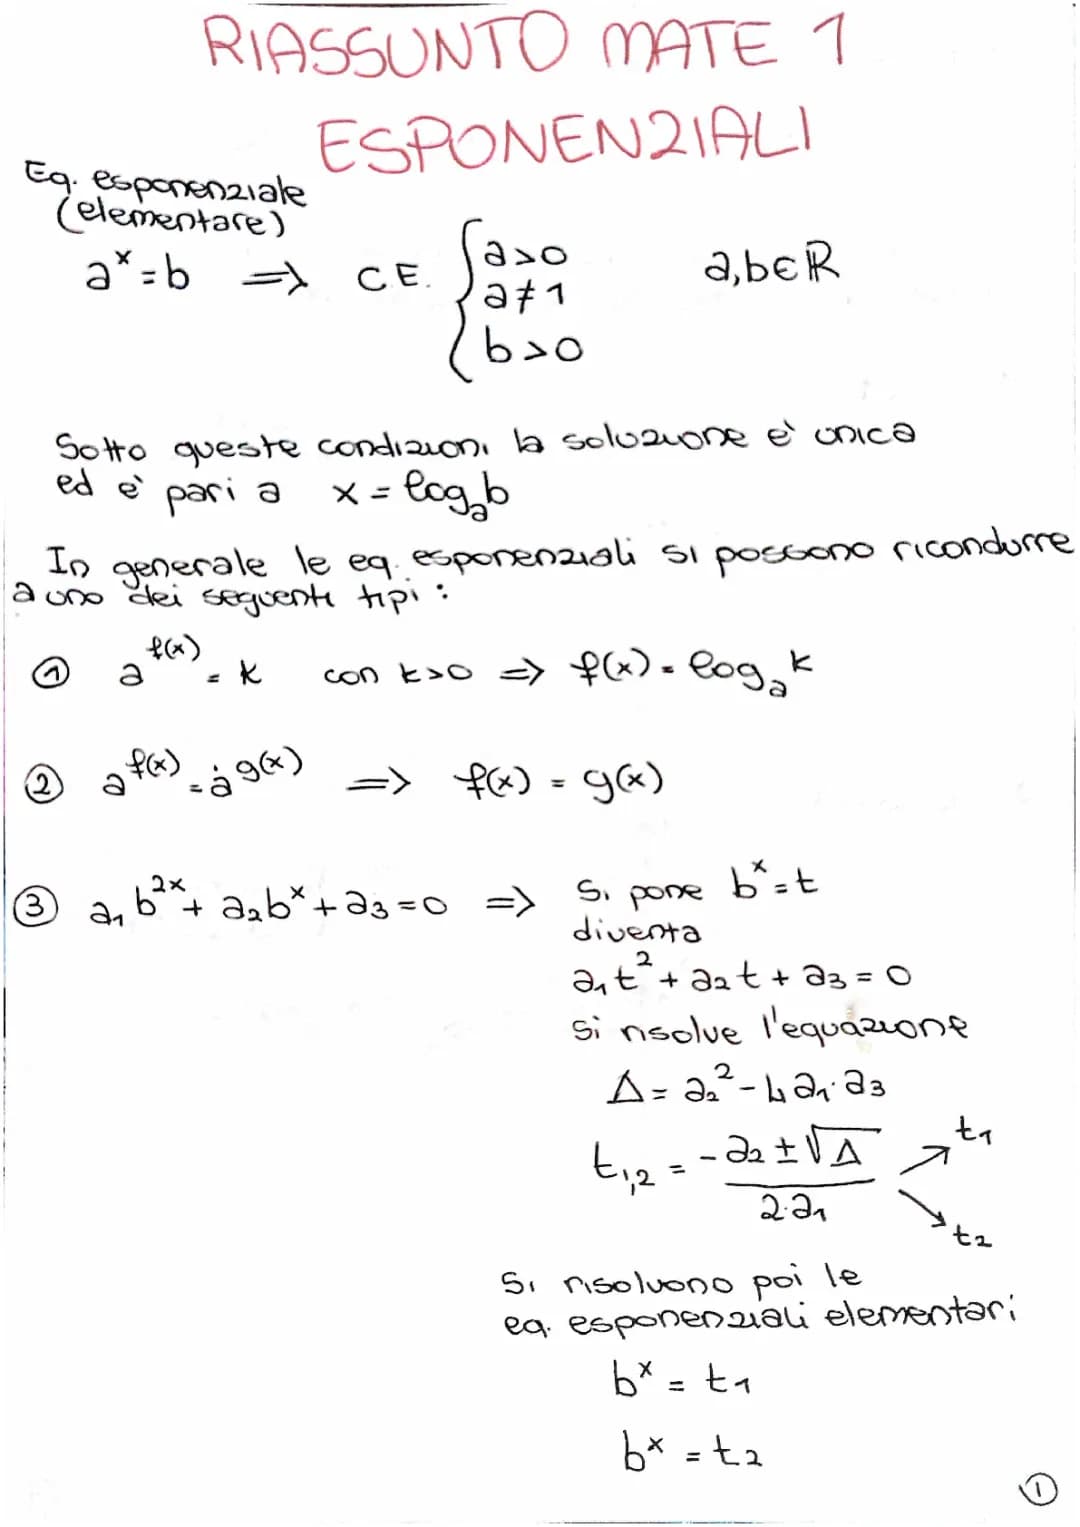 RIASSUNTO MATE 1
ESPONENZIALI
Eq. esponenziale
(elementare)
aˣ = b ⇒ C.E. { a>0 a,b∈ℝ
a≠1
b>0
Sotto queste condizioni la soluzione è unica
ed è pari a x = logₐb
In generale le eq. esponenziali si possono ricondurre
a uno dei seguenti tipi:
① a^f(x) = k con k>0 ⇒ f(x) = logₐk
② a^f(x) = a^g(x) ⇒ f(x) = g(x)
③ a₁b²ˣ + a₂bˣ + a₃ = 0 ⇒ Si pone bˣ = t
diventa
a₁t² + a₂t + a₃ = 0
si risolve l'equazione
Δ = a₂² - 4a₁·a₃
t₁,₂ = (-a₂ ± √Δ) / (2·a₁) ↗ t₁
↘ t₂
Si risolvono poi le
eq. esponenziali elementari
bˣ = t₁
bˣ = t₂
①